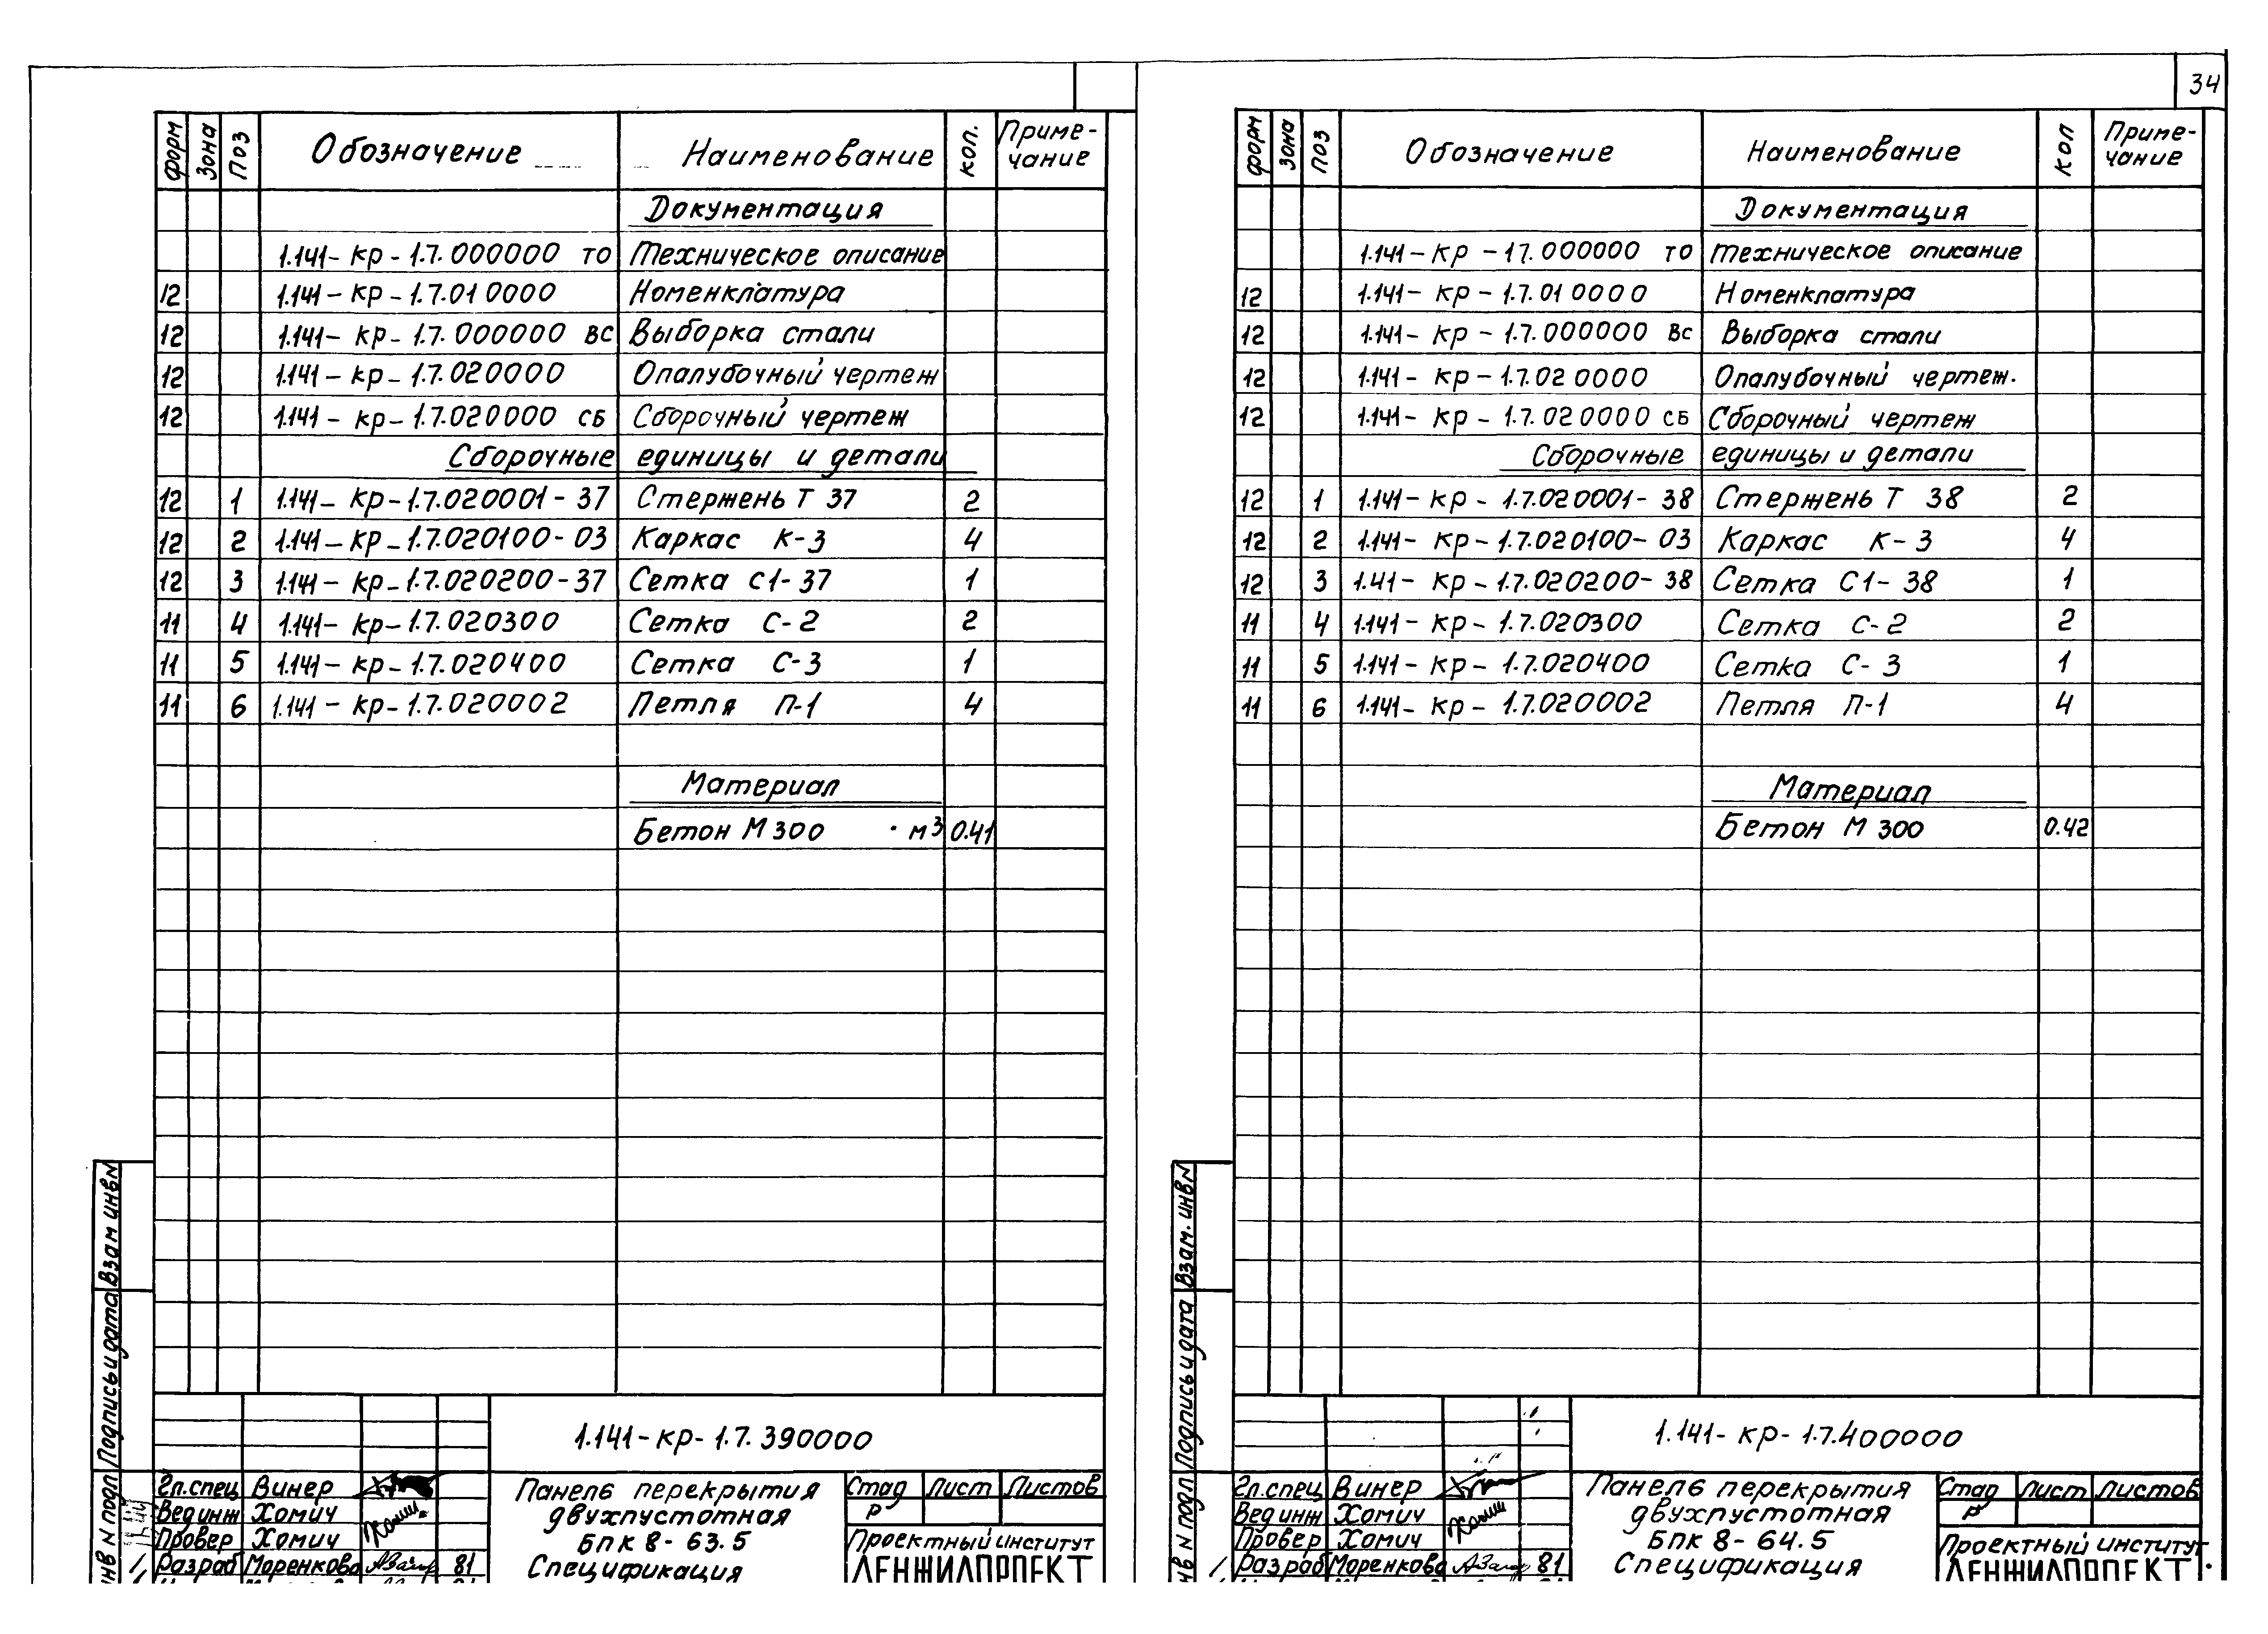 форм Зона Поз Обозначение Наименование кол. Приме-
чание
Документация
1.141-кр-1.7.000000 ТО Техническое описание
12 1.141-кр-1.7.010000 Номенклатура
12 1.141-кр-1.7.000000 ВС Выборка стали
12 1.141-кр-1.7.020000 Опалубочный чертеж
12 1.141-кр-1.7.020000 СБ Сборочный чертеж
Сборочные единицы и детали
12 1 1.141-кр-1.7.020001-37 Стержень Т 37 2
12 2 1.141-кр-1.7.020100-03 Каркас К-3 4
12 3 1.141-кр-1.7.020200-37 Сетка С1-37 1
11 4 1.141-кр-1.7.020300 Сетка С-2 2
11 5 1.141-кр-1.7.020400 Сетка С-3 1
11 6 1.141-кр-1.7.020002 Петля П-1 4
Материал
Бетон М300 м³ 0.41
Взам инв N
Подпись и дата
инв N подл
1.141-кр-1.7.390000
Гл.спец Винер
Вед инж Хомич
Провер Хомич
Разраб Моренкова 81
Панель перекрытия
двухпустотная
БПК 8-63.5
Спецификация
Стад Лист Листов
Р
Проектный институт
ЛЕНЖИЛПРОЕКТ
34
форм Зона Поз Обозначение Наименование Кол Приме-
чание
Документация
1.141-кр-17.000000 ТО Техническое описание
12 1.141-кр-1.7.010000 Номенклатура
12 1.141-кр-1.7.000000 ВС Выборка стали
12 1.141-кр-1.7.020000 Опалубочный чертеж.
12 1.141-кр-1.7.020000 СБ Сборочный чертеж
Сборочные единицы и детали
12 1 1.141-кр-1.7.020001-38 Стержень Т 38 2
12 2 1.141-кр-1.7.020100-03 Каркас К-3 4
12 3 1.41-кр-1.7.020200-38 Сетка С1-38 1
11 4 1.141-кр-1.7.020300 Сетка С-2 2
11 5 1.141-кр-1.7.020400 Сетка С-3 1
11 6 1.141-кр-1.7.020002 Петля П-1 4
Материал
Бетон М 300 0.42
Взам. инв N
Подпись и дата
инв N подл
1.141-кр-1.7.400000
Гл.спец Винер
Вед инж Хомич
Провер Хомич
Разраб Моренкова 81
Панель перекрытия
двухпустотная
БПК 8-64.5
Спецификация
Стад Лист Листов
Р
Проектный институт
ЛЕНЖИЛПРОЕКТ